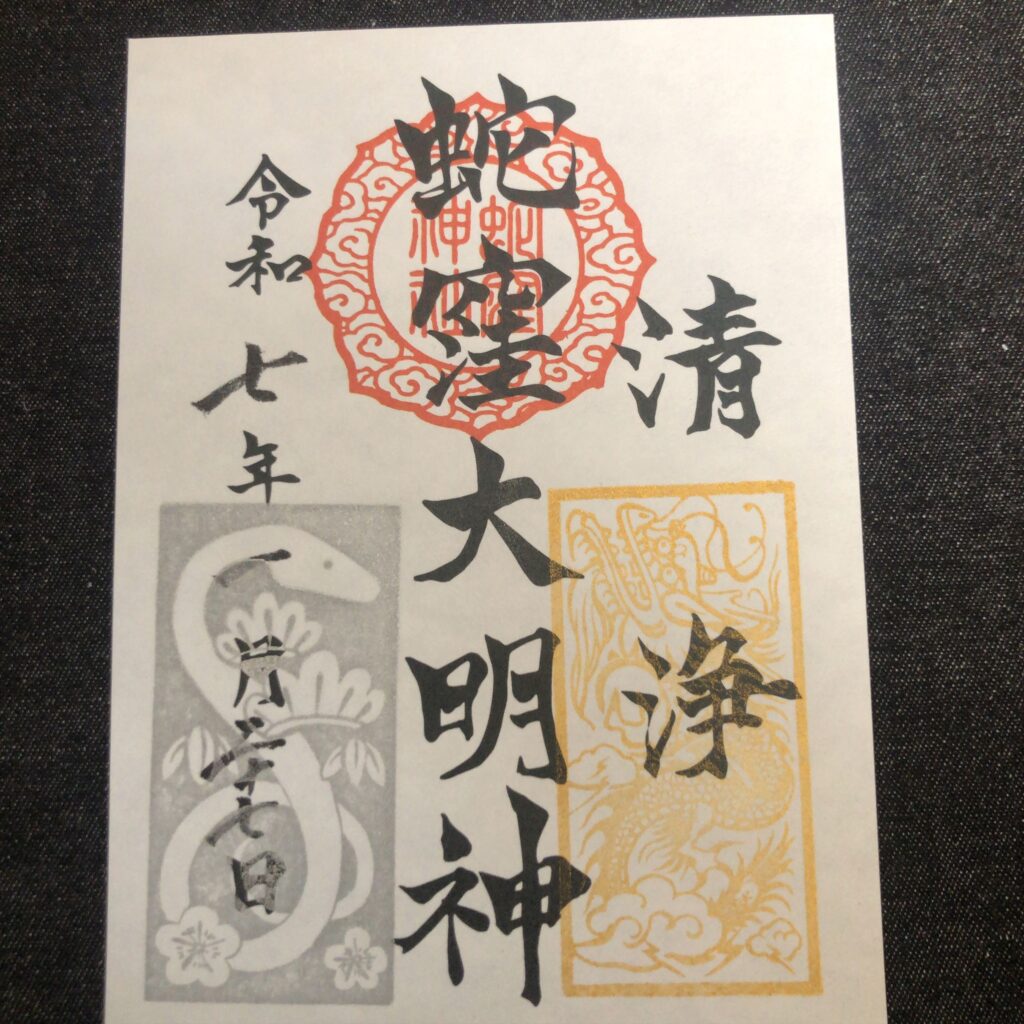 清浄
蛇窪大明神
蛇窪神社
令和七年一月二十七日